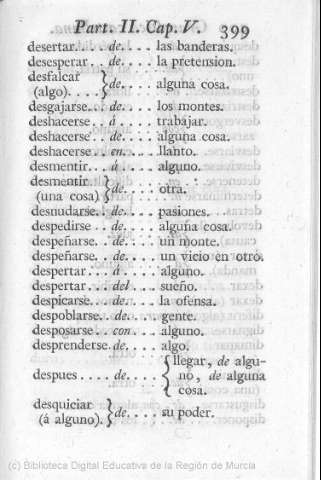 Part. II. Cap. V. 399
desertar. . . de. . . . las banderas.
desesperar. . de. . . . la pretension.
desfalcar
(algo). . . . } de. . . . alguna cosa.
desgajarse. . de. . . . los montes.
deshacerse. . á . . . . trabajar.
deshacerse. . de. . . . alguna cosa.
deshacerse . . en. . . . llanto.
desmentir. . . á . . . . alguno.
desmentir
(una cosa) } de. . . . otra.
desnudarse. . de. . . . pasiones.
despedirse . . de. . . . alguna cosa.
despeñarse. . de. . . . un monte.
despeñarse. . de. . . . un vicio en otro.
despertar. . . á . . . . alguno.
despertar. . . del . . . sueño.
despicarse. . . de. . . . la ofensa.
despoblarse. . de. . . . gente.
desposarse . . con . . . alguno.
desprenderse. de. . . . algo.
despues . . . . de. . . . { llegar, de algu-
no, de alguna
cosa.
desquiciar
(á alguno). } de. . . . su poder.
(c) Biblioteca Digital Educativa de la Región de Murcia